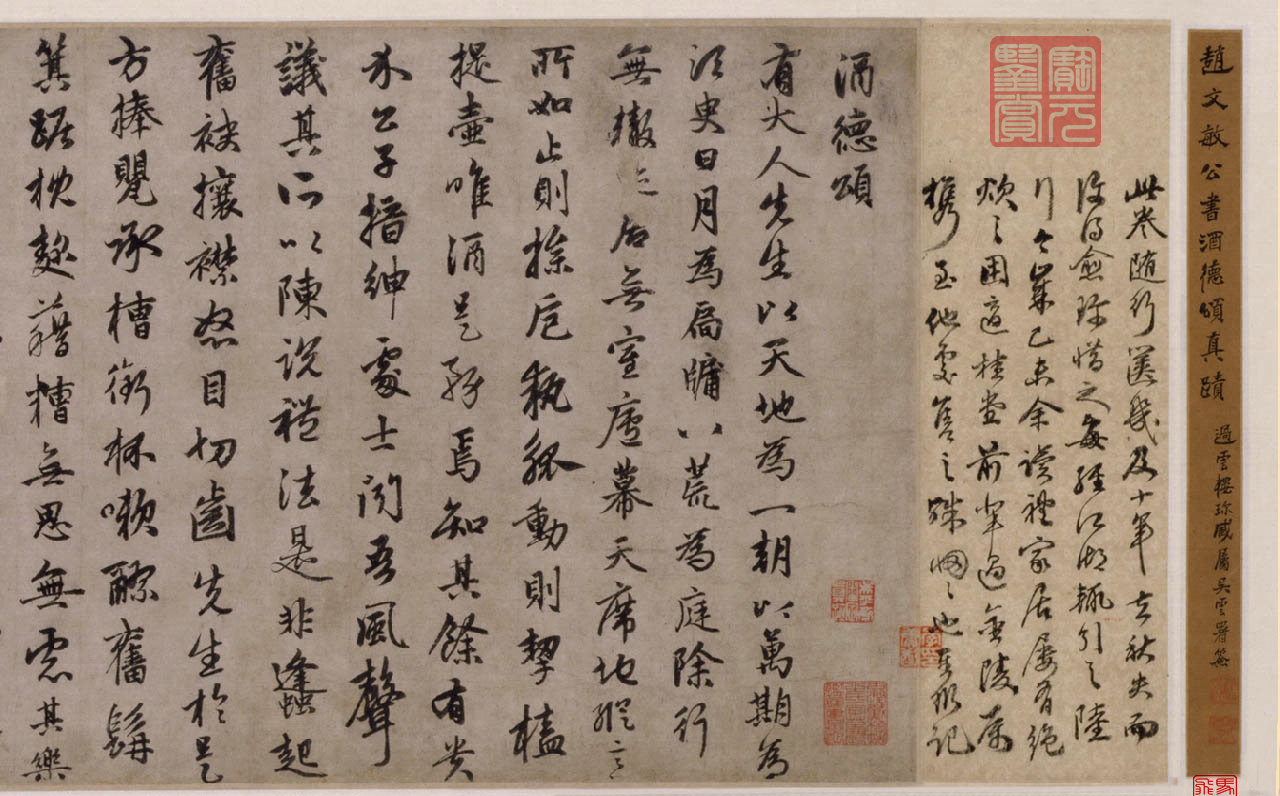 趙文敏公書酒德頌真蹟
過雲樓珍藏屬吳雲署簽
寶元
鑒賞
此卷隨行篋幾及十年去秋失而
復得愈珍惜之每經江湖輒引之陸
行今歲己未余讀禮家居屢有絕
炊之困適桂堂前輩過金陵屬
攜至他處售之殊悵悵也記
酒德頌
有大人先生以天地為一朝以萬期為
須臾日月為扃牖八荒為庭除行
無轍迹居無室廬幕天席地縱意
所如止則操卮執觚動則挈榼
提壺唯酒是務焉知其餘有貴
介公子搢紳處士聞吾風聲
議其所以陳說禮法是非蠭起
奮袂攘襟怒目切齒先生於是
方捧甖承槽銜杯漱醪奮髯
箕踞枕麴藉糟無思無慮其樂